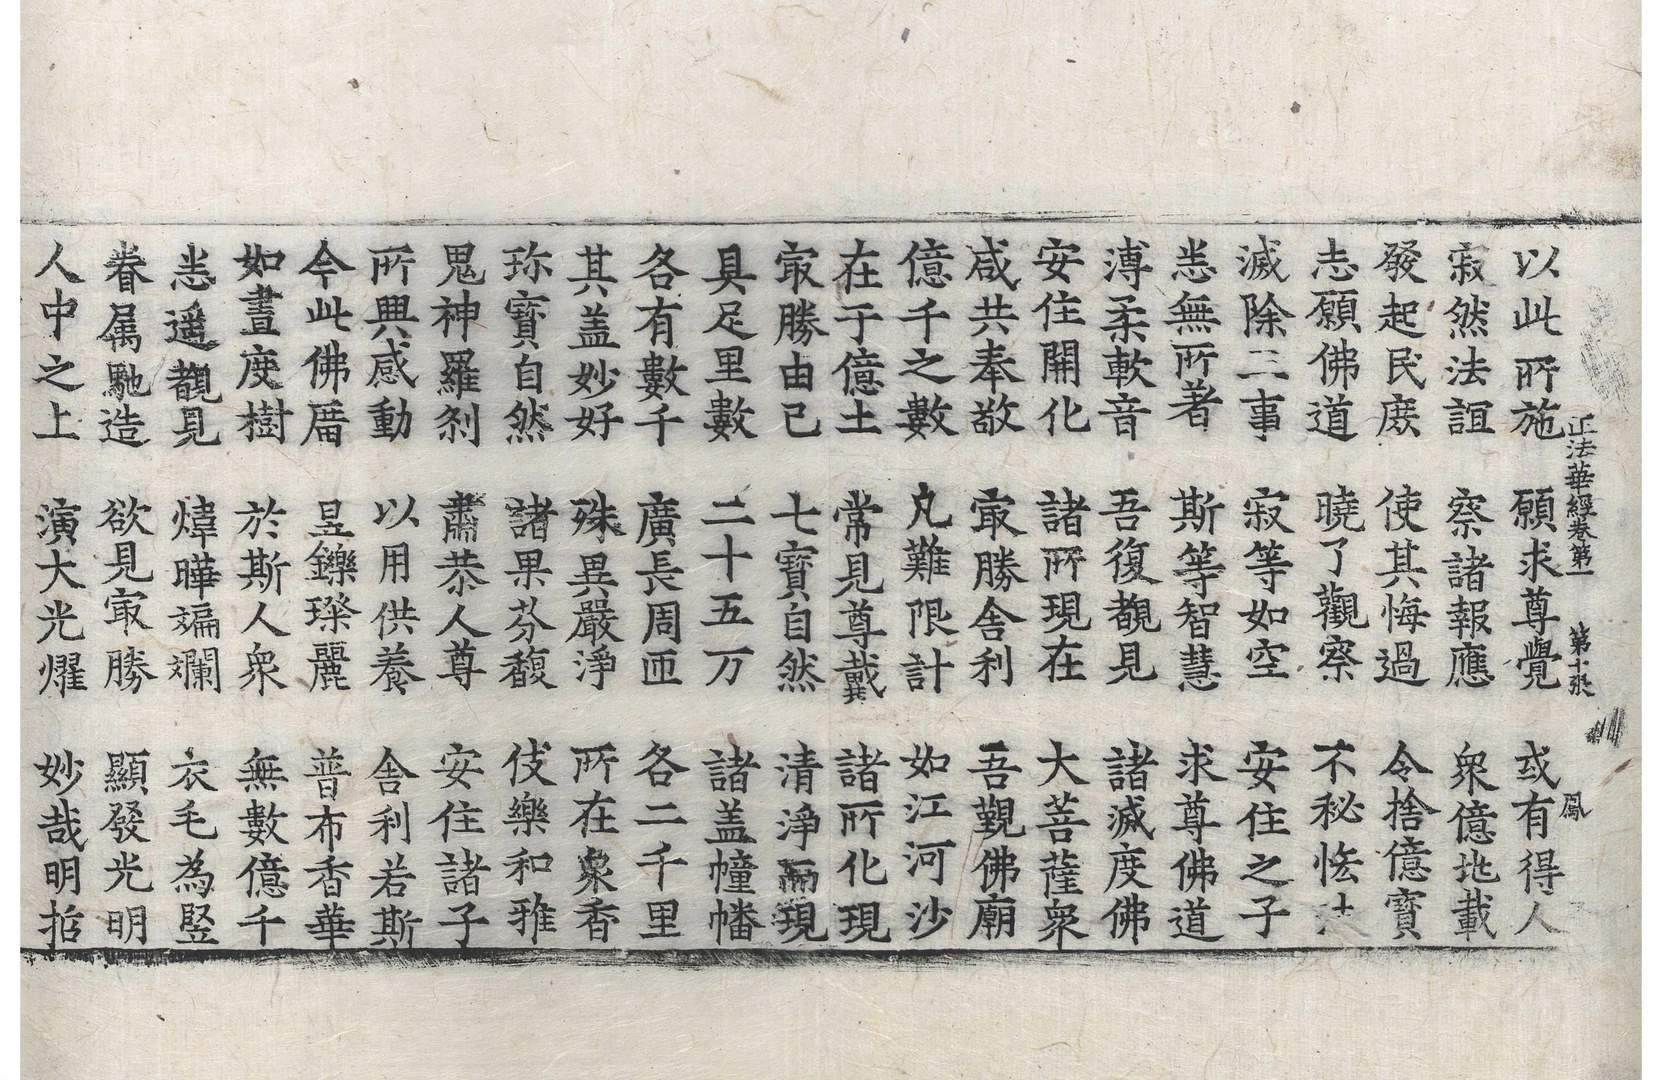 正法華經卷第一 第十張 鳳
以此所施 願求尊覺 或有得人
寂然法誼 察諸報應 衆億地載
發起民庶 使其悔過 令捨億寶
志願佛道 曉了觀察 不秘悋
滅除二事 寂等如空 安住之子
恙無所著 斯等智慧 求尊佛道
溥柔軟音 吾復覩見 諸滅度佛
安住開化 諸所現在 大菩薩衆
咸共奉敬 㝡勝舍利 吾觀佛廟
億千之數 凡難限計 如江河沙
在于億土 常見尊戴 諸所化現
㝡勝由已 七寶自然 清淨而現
具足里數 二十五万 諸盖幢幡
各有數千 廣長周迊 各二千里
其盖妙好 殊異嚴淨 所在衆香
珎寶自然 諸果芬馥 伎樂和雅
鬼神羅刹 肅恭人尊 安住諸子
所興感動 以用供養 舍利若斯
今此佛厝 昱鑠璨麗 普布香華
如晝度樹 於斯人衆 無數億千
恙遥覩見 煒曄斒斕 衣毛為竪
眷属馳造 欲見㝡勝 顯發光明
人中之上 演大光燿 妙哉明哲